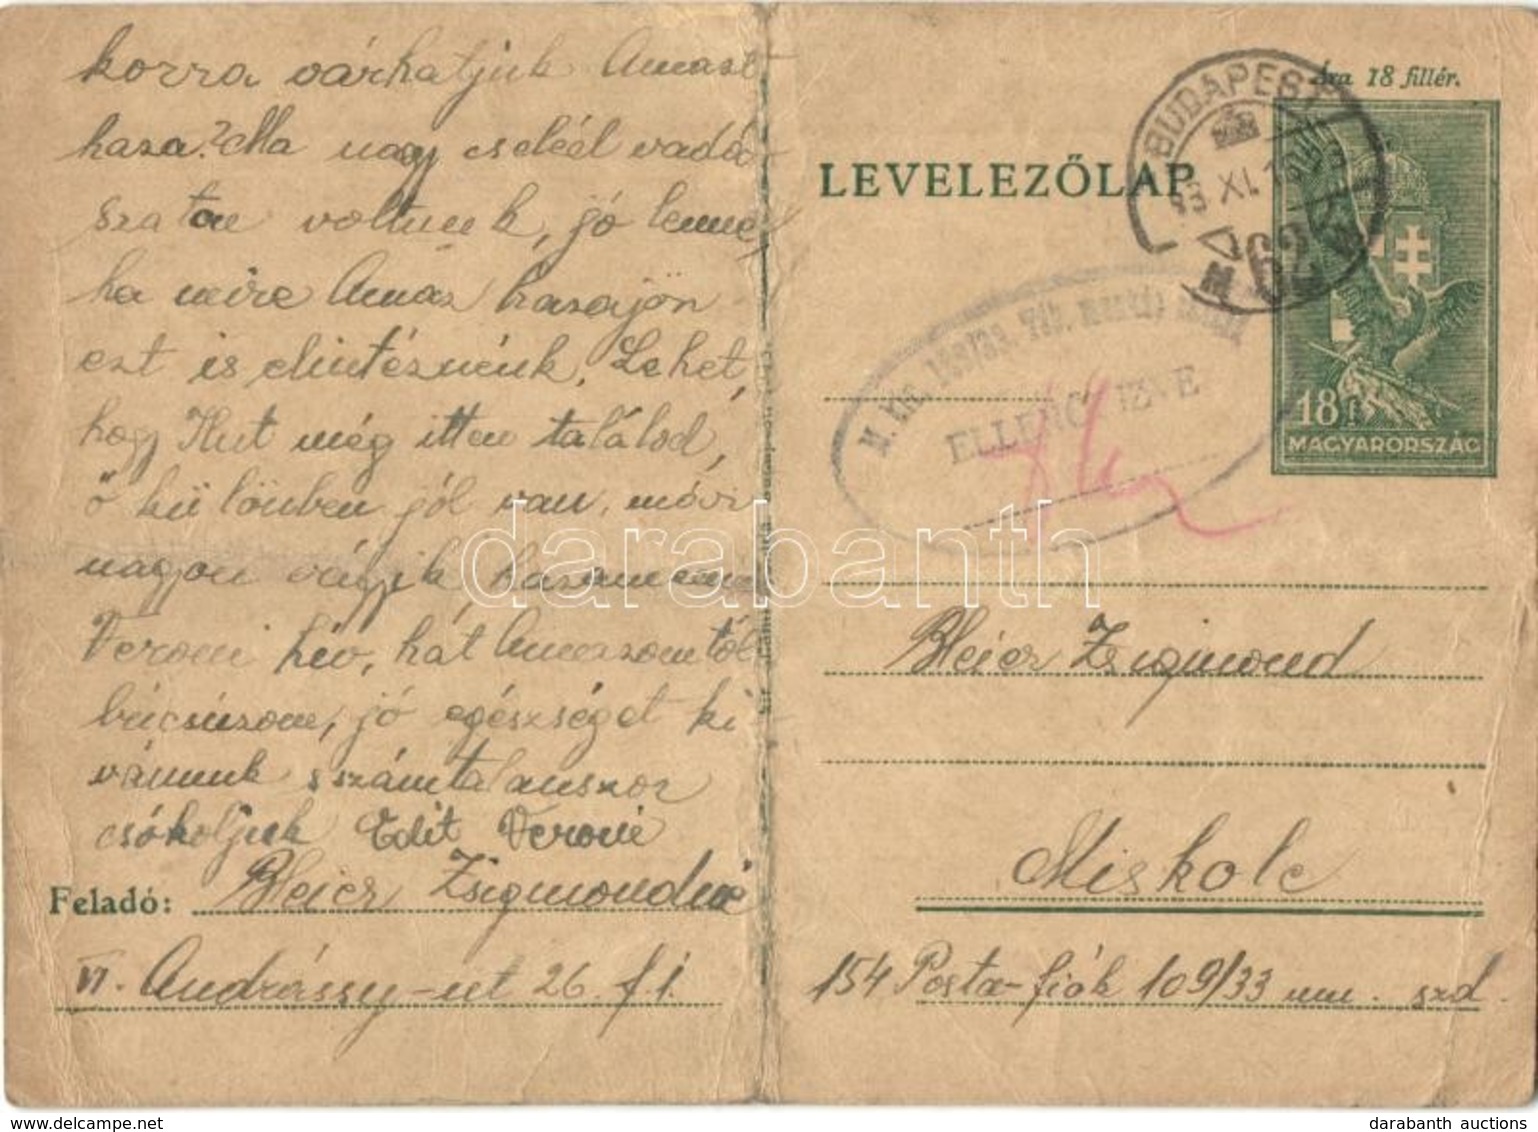 korra várhatjuk Amast
haza? Ma nagy cseléd vadá-
szaton voltunk, jó lenne,
ha mire Amaz hazajön
ezt is elintéznénk. Lehet,
hogy Ilut még itten találod,
ő különben jól van, mövr
nagyon vágyik hazamenni
Veroni hív, hát Amaszomtól
búcsúzom, jó egészséget ki
vánunk s számtalanszor
csókoljuk Edit Veroni
Feladó: Bleier Zsigmondné
VI. Andrássy-ut 26. f. 1.
Ára 18 fillér.
LEVELEZŐLAP
BUDAPEST
62
ELLENŐRIZVE
18 f
MAGYARORSZÁG
Bleier Zsigmond
Miskolc
154 Posta-fiók 109/33 mu. szd.
darabanth
darabanth auctions